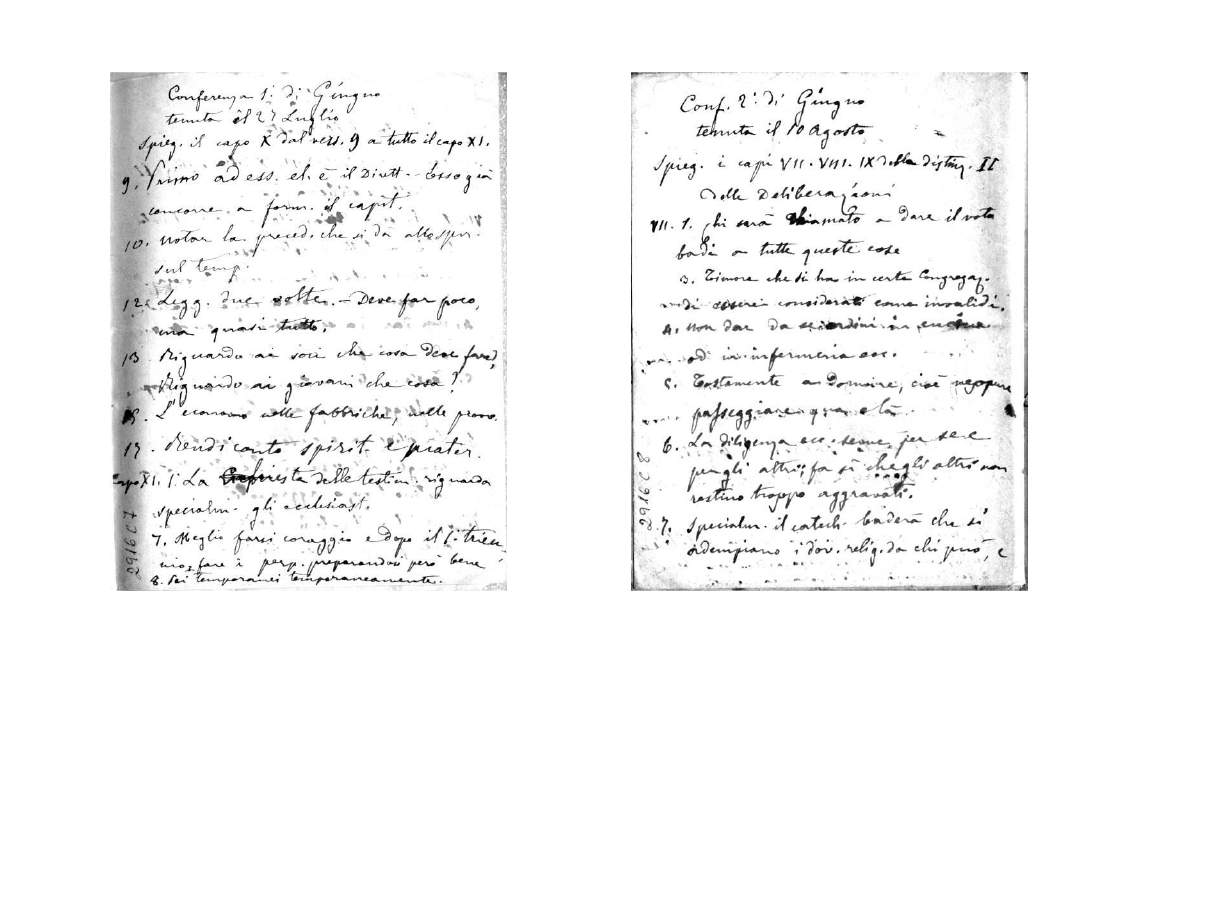 Conferenza 1ª di Giugno
tenuta il 27 Luglio
Spieg. il capo X dal vers. 9 a tutto il capo XI.
9. Primo ad ess. el. è il Dirett. - Esso già
concorre a form. il capit.
10. Notar la preced. che si dà allo spir.
sul temp.
12. Legg. due volte. - Deve far poco,
ma quasi tutto.
13. Riguardo ai soci che cosa deve fare?
Riguardo ai giovani che cosa?
L'economo nelle fabbriche, nelle provv.
17. Rendiconto spirit. e mater.
Capo XI. 1. La richiesta delle testim. riguarda
specialm. gli ecclesiast.
7. Meglio farsi coraggio e dopo il 1º trien
nio, fare i perp. preparandosi però bene
8. Sei temporanei temporaneamente.
2916 C 7
Conf. 2ª di Giugno
tenuta il 10 Agosto
Spieg. i capi VII. VIII. IX della distinz. II
delle Deliberazioni
VII. 1. Chi sarà chiamato a dare il voto
badi a tutte queste cose
3. Timore che si ha in certe Congregaz.
di essere considerati come invalidi.
4. Non dar da sé ordini in cucina
od in infermeria ecc.
5. Esattamente a Dormire, cioè neppure
passeggiare qua e là
6. La diligenza ecc. serve per sé e
per gli altri; fa sì che gli altri non
restino troppo aggravati.
7. Specialm. il catech. baderà che si
adempiano i dov. relig. da chi può, e
2916 C 8